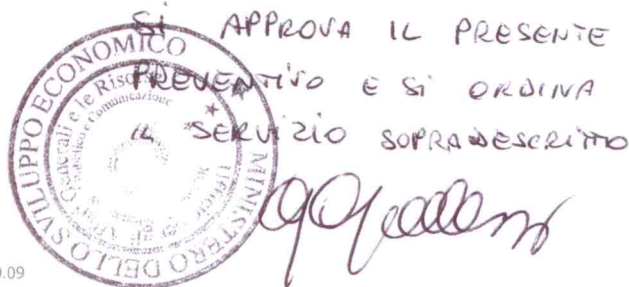 SI APPROVA IL PRESENTE
PREVENTIVO E SI ORDINA
IL SERVIZIO SOPRADESCRITTO
MINISTERO DELLO SVILUPPO ECONOMICO
Generali e le Risorse
Comunicazione
0.09